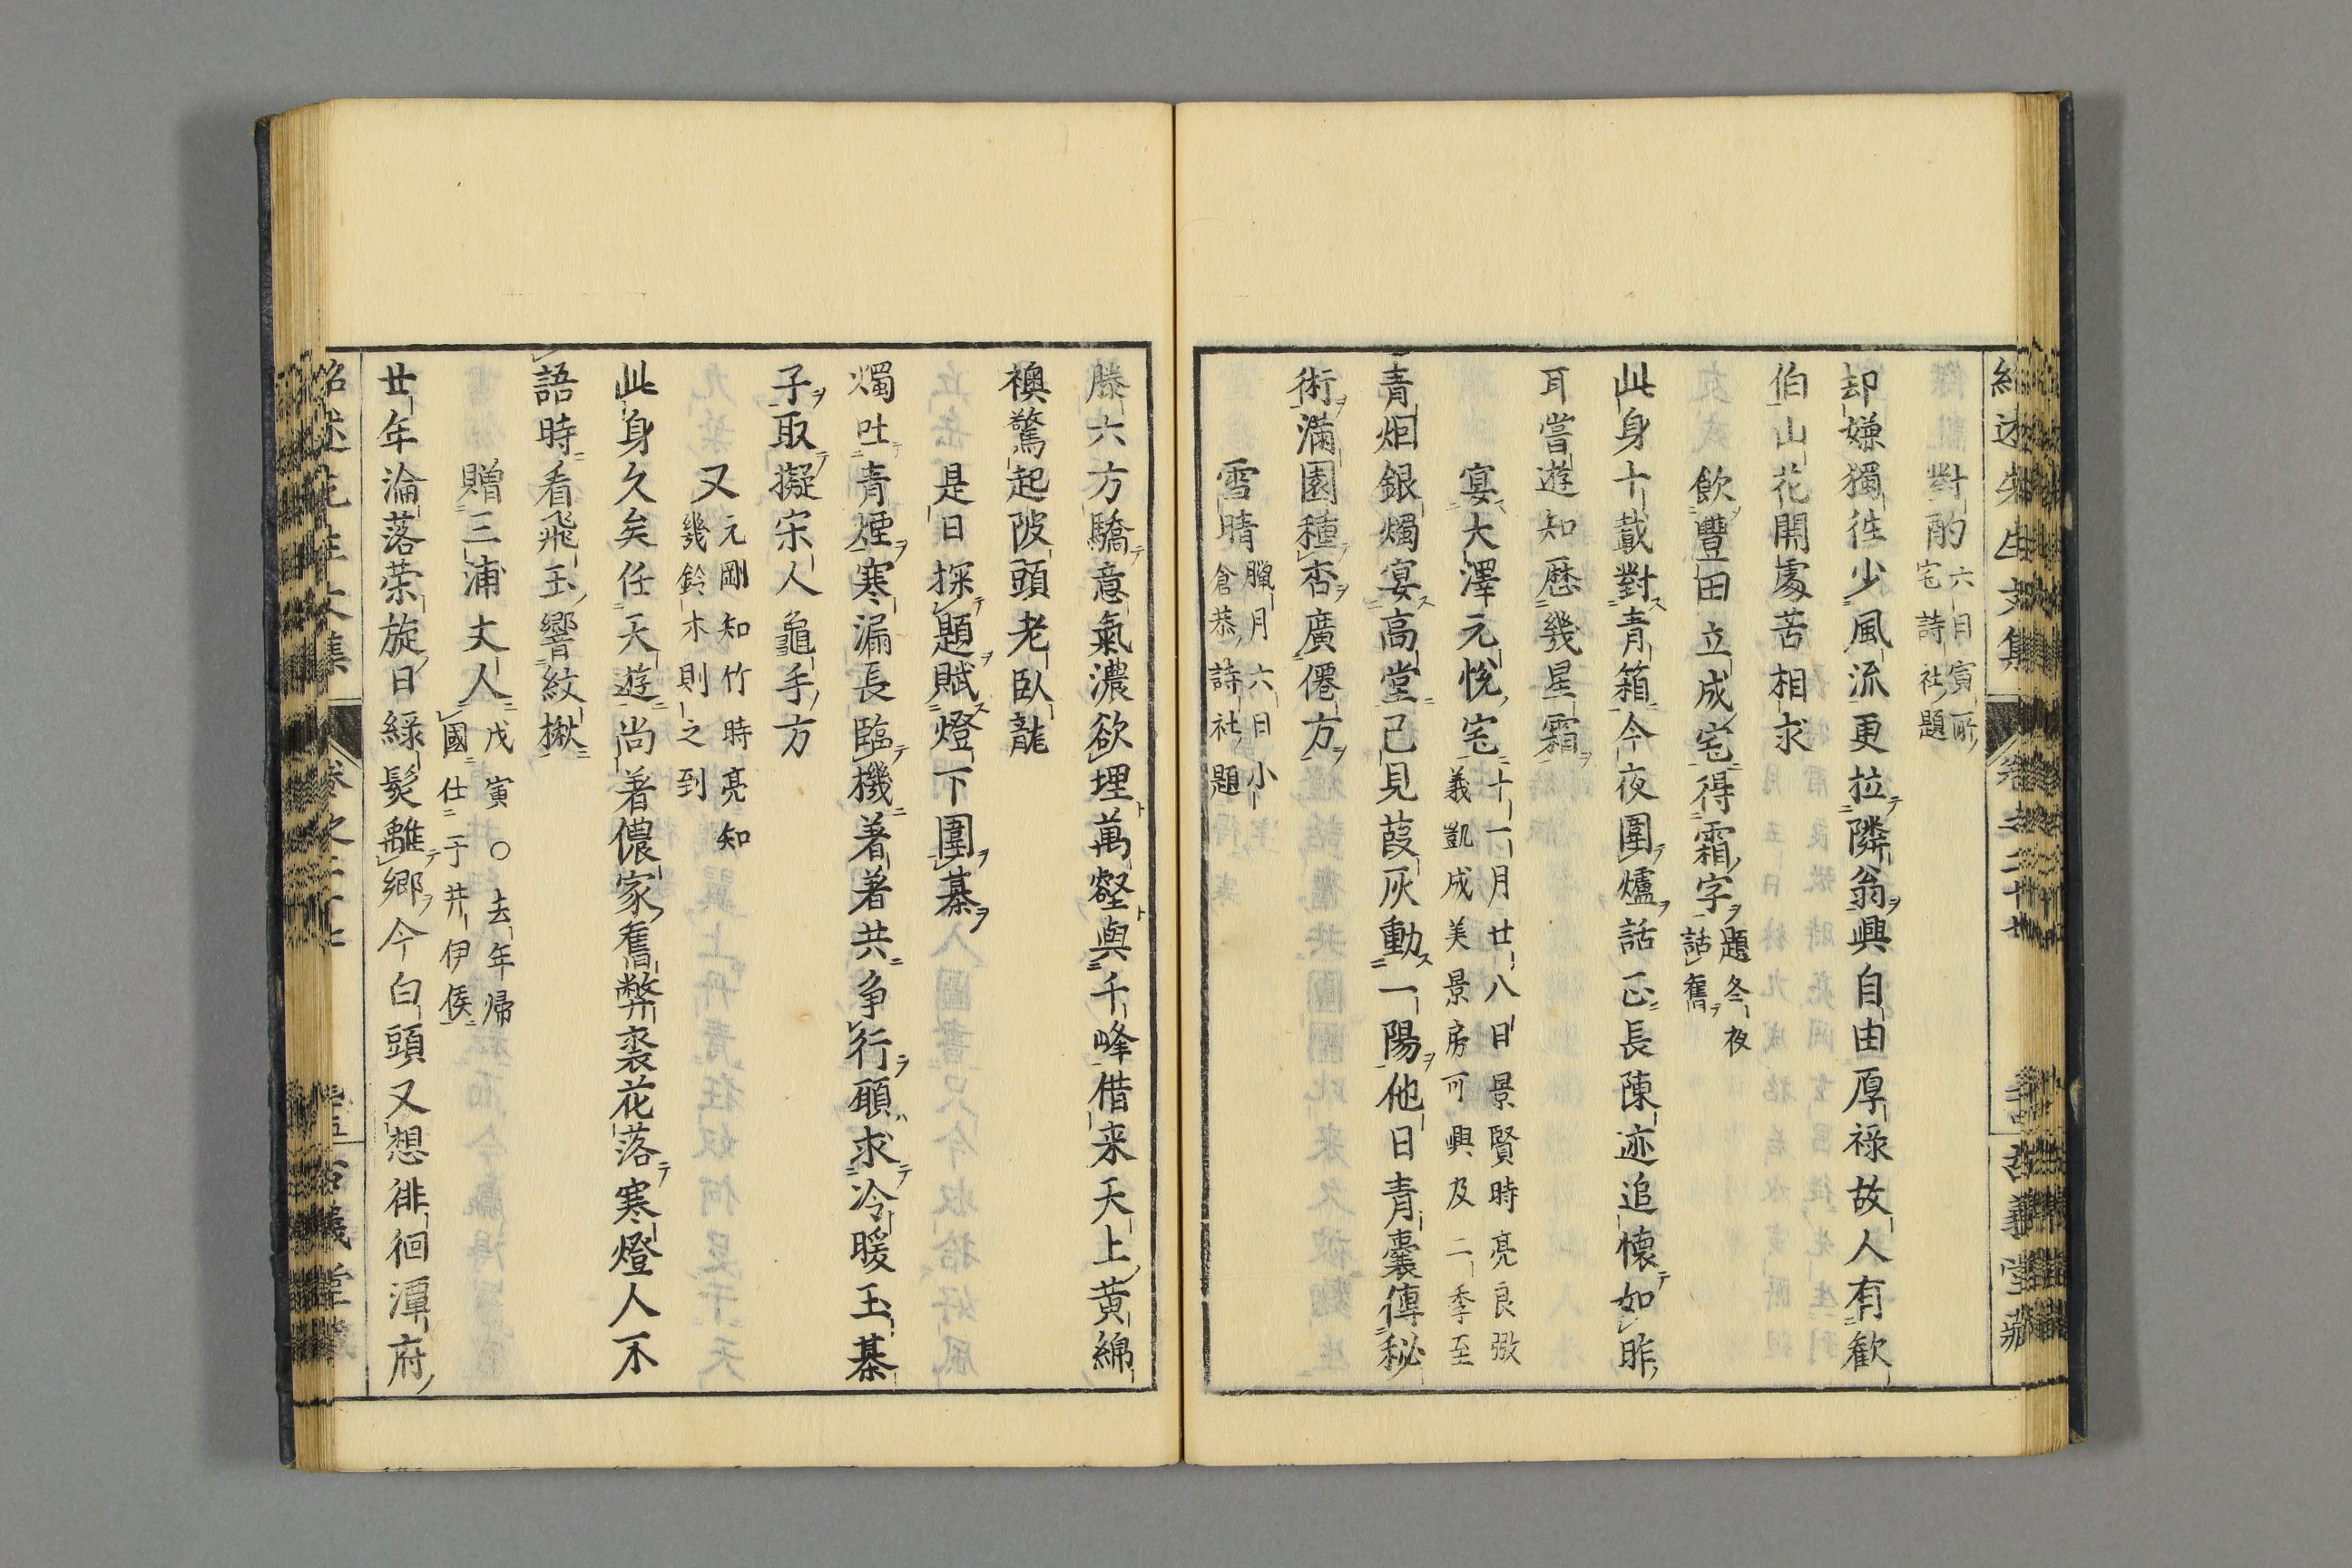 對酌 六日寅所宅詩社題
却嫌獨徃少風流更拉隣翁興自由厚祿故人有歡
伯山花開處苦相求
飲豐田立成宅得霜字 題冬夜話舊
此身十載對青箱今夜圍爐話正長陳迹追懷如昨
耳嘗遊知歷幾星霜
宴大澤元悅宅 十一月廿八日景賢時亮良弼義凱成美景房可興及二季至
青烟銀燭宴高堂已見葭灰動一陽他日青囊傳秘
術滿園種杏廣僊方
雪晴 臘月六日小倉恭詩社題
滕六方驕意氣濃欲埋萬壑與千峰借来天上黃綿
襖驚起陂頭老臥龍
是日探題賦燈下圍棊
燭吐青煙寒漏長臨機著著共争行願求冷暖玉棊
子取擬宋人龜手方
又 元剛知竹時亮知幾鈴木則之到
此身久矣任天遊尚著儂家舊弊裘花落寒燈人不
語時看飛玉響紋楸
贈三浦丈人 戊寅○去年帰國仕于井伊侯
廿年淪落荣旋日綠髮離鄉今白頭又想徘徊潭府